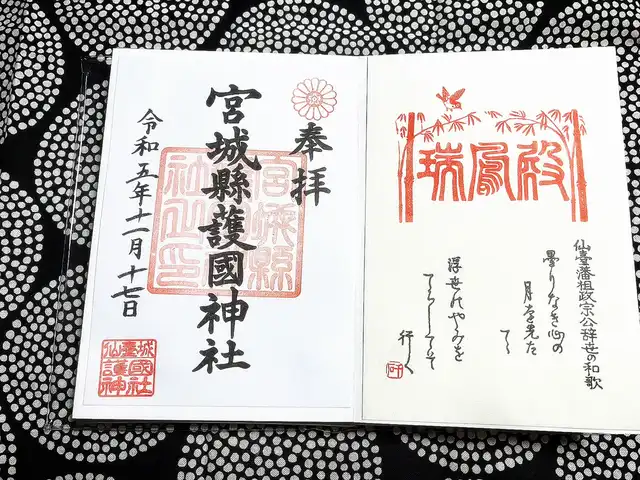 瑞鳳殿
仙臺藩祖政宗公辞世の和歌
曇りなき心の
月を先た
てゝ
浮世のやみを
てらしてそ
行く
奉拝
宮城縣護國神社
令和五年十一月十七日
宮城縣
護國神
社之印
仙臺城
護國
神社